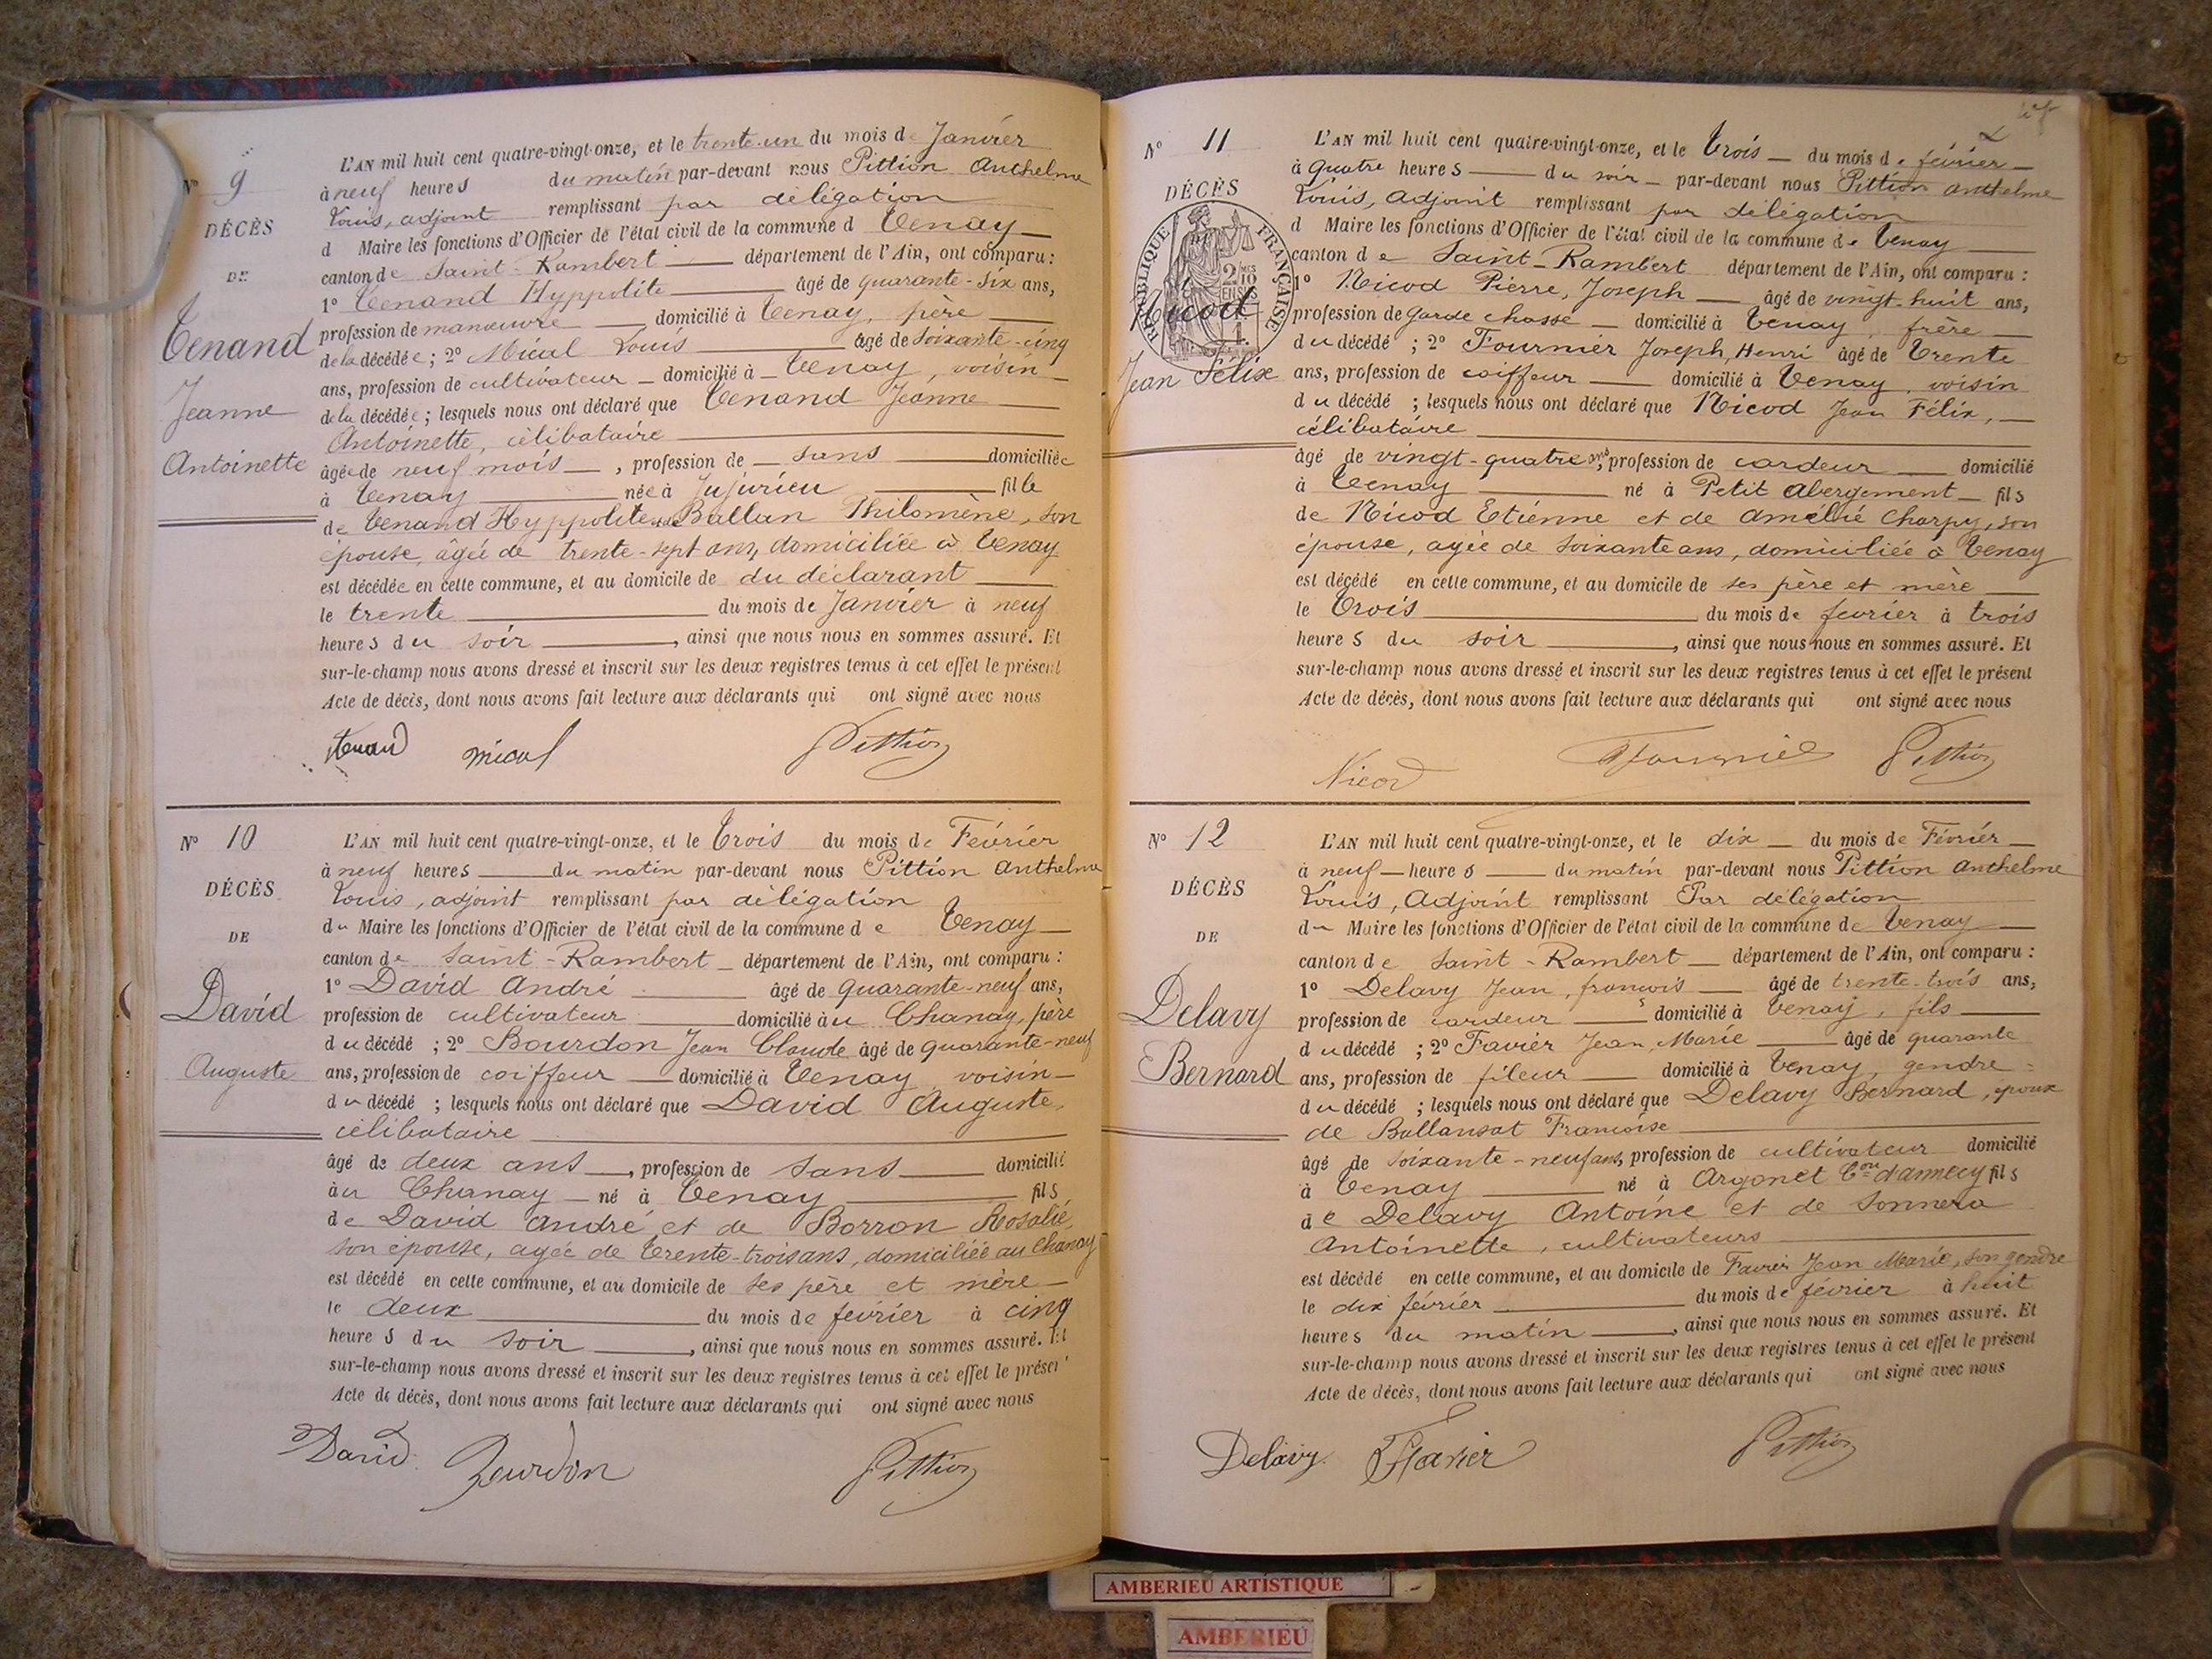 N° 9
DÉCÈS
DE
Tenand
Jeanne
Antoinette
L'AN mil huit cent quatre-vingt-onze, et le trente-un du mois de Janvier
à neuf heures du matin par-devant nous Pittion Anthelme
Louis, adjoint remplissant par délégation
d Maire les fonctions d'Officier de l'état civil de la commune d Tenay
canton de Saint-Rambert département de l'Ain, ont comparu :
1° Tenand Hyppolite âgé de quarante-six ans,
profession de manœuvre domicilié à Tenay, père
de la décédée ; 2° Micol Louis âgé de soixante-cinq
ans, profession de cultivateur domicilié à Tenay, voisin
de la décédée ; lesquels nous ont déclaré que Tenand Jeanne
Antoinette, célibataire
âgée de neuf mois, profession de sans domiciliée
à Tenay née à Jujurieu fille
de Tenand Hyppolite et de Ballan Philomène, son
épouse, âgée de trente-sept ans, domiciliée à Tenay
est décédée en cette commune, et au domicile de du déclarant
le trente du mois de Janvier à neuf
heures du soir, ainsi que nous nous en sommes assuré. Et
sur-le-champ nous avons dressé et inscrit sur les deux registres tenus à cet effet le présent
Acte de décès, dont nous avons fait lecture aux déclarants qui ont signé avec nous
Tenand Micol Pittion
N° 10
DÉCÈS
DE
David
Auguste
L'AN mil huit cent quatre-vingt-onze, et le Trois du mois de Février
à neuf heures du matin par-devant nous Pittion Anthelme
Louis, adjoint remplissant par délégation
du Maire les fonctions d'Officier de l'état civil de la commune de Tenay
canton de Saint-Rambert département de l'Ain, ont comparu :
1° David André âgé de quarante-neuf ans,
profession de cultivateur domicilié àu Chanay, père
du décédé ; 2° Bourdon Jean Claude âgé de quarante-neuf
ans, profession de coiffeur domicilié à Tenay, voisin
du décédé ; lesquels nous ont déclaré que David Auguste,
célibataire
âgé de deux ans, profession de sans domicilié
àu Chanay né à Tenay fils
de David André et de Borron Rosalie,
son épouse, agée de Trente-trois ans, domiciliée au Chanay
est décédé en cette commune, et au domicile de ses père et mère
le deux du mois de février à cinq
heures du soir, ainsi que nous nous en sommes assuré. Et
sur-le-champ nous avons dressé et inscrit sur les deux registres tenus à cet effet le présent
Acte de décès, dont nous avons fait lecture aux déclarants qui ont signé avec nous
David Bourdon Pittion
N° 11
DÉCÈS
RÉPUBLIQUE FRANÇAISE
Nicod
Jean Félix
L'AN mil huit cent quatre-vingt-onze, et le Trois du mois de février
à Quatre heures du soir par-devant nous Pittion anthelme
Louis, Adjoint remplissant par délégation
d Maire les fonctions d'Officier de l'état civil de la commune de Tenay
canton de Saint-Rambert département de l'Ain, ont comparu :
1° Nicod Pierre, Joseph âgé de vingt-huit ans,
profession de Garde chasse domicilié à Tenay frère
du décédé ; 2° Fournier Joseph, Henri âgé de Trente
ans, profession de coiffeur domicilié à Tenay, voisin
du décédé ; lesquels nous ont déclaré que Nicod Jean Félix,
célibataire
âgé de vingt-quatre ans, profession de cardeur domicilié
à Tenay né à Petit Abergement fils
de Nicod Etienne et de Amélie Charpy, son
épouse, agée de soixante ans, domiciliée à Tenay
est décédé en cette commune, et au domicile de ses père et mère
le Trois du mois de février à trois
heures du soir, ainsi que nous nous en sommes assuré. Et
sur-le-champ nous avons dressé et inscrit sur les deux registres tenus à cet effet le présent
Acte de décès, dont nous avons fait lecture aux déclarants qui ont signé avec nous
Nicod Fournier Pittion
N° 12
DÉCÈS
DE
Delavy
Bernard
L'AN mil huit cent quatre-vingt-onze, et le dix du mois de Février
à neuf heures du matin par-devant nous Pittion Anthelme
Louis, Adjoint remplissant Par délégation
du Maire les fonctions d'Officier de l'état civil de la commune de Tenay
canton de Saint-Rambert département de l'Ain, ont comparu :
1° Delavy Jean, francois âgé de trente-trois ans,
profession de cardeur domicilié à Tenay, fils
du décédé ; 2° Favier Jean, Marie âgé de quarante
ans, profession de fileur domicilié à Tenay, gendre
du décédé ; lesquels nous ont déclaré que Delavy Bernard, epoux
de Ballansat Francoise
âgé de soixante-neuf ans, profession de cultivateur domicilié
à Tenay né à Argonet Con d'annecy fils
de Delavy Antoine et de Sonnera
Antoinette, cultivateurs
est décédé en cette commune, et au domicile de Favier Jean Marie, son gendre
le dix février du mois de février à huit
heures du matin, ainsi que nous nous en sommes assuré. Et
sur-le-champ nous avons dressé et inscrit sur les deux registres tenus à cet effet le présent
Acte de décès, dont nous avons fait lecture aux déclarants qui ont signé avec nous
Delavy Favier Pittion
AMBERIEU ARTISTIQUE
AMBERIEU